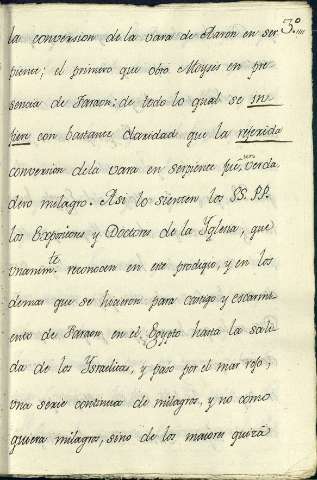 3.º
la conversion de la vara de Aaron en ser
piente; el primero que obró Moyses en pre
sencia de Faraon: de todo lo qual se in
fiere con bastante claridad que la referida
conversion dela vara en serpiente fue verda
dero milagro. Asi lo sienten los SS. PP.
los Expositores y Doctores de la Yglesia, que
vnanimte. reconocen en este prodigio, y en los
demas que se hicieron para castigo y escarmi
ento de Faraon en el Egypto hasta la sali
da de los Israelitas, y paso por el mar rojo,
vna serie continua de milagros, y no como
quiera milagros, sino de los maiores quizá